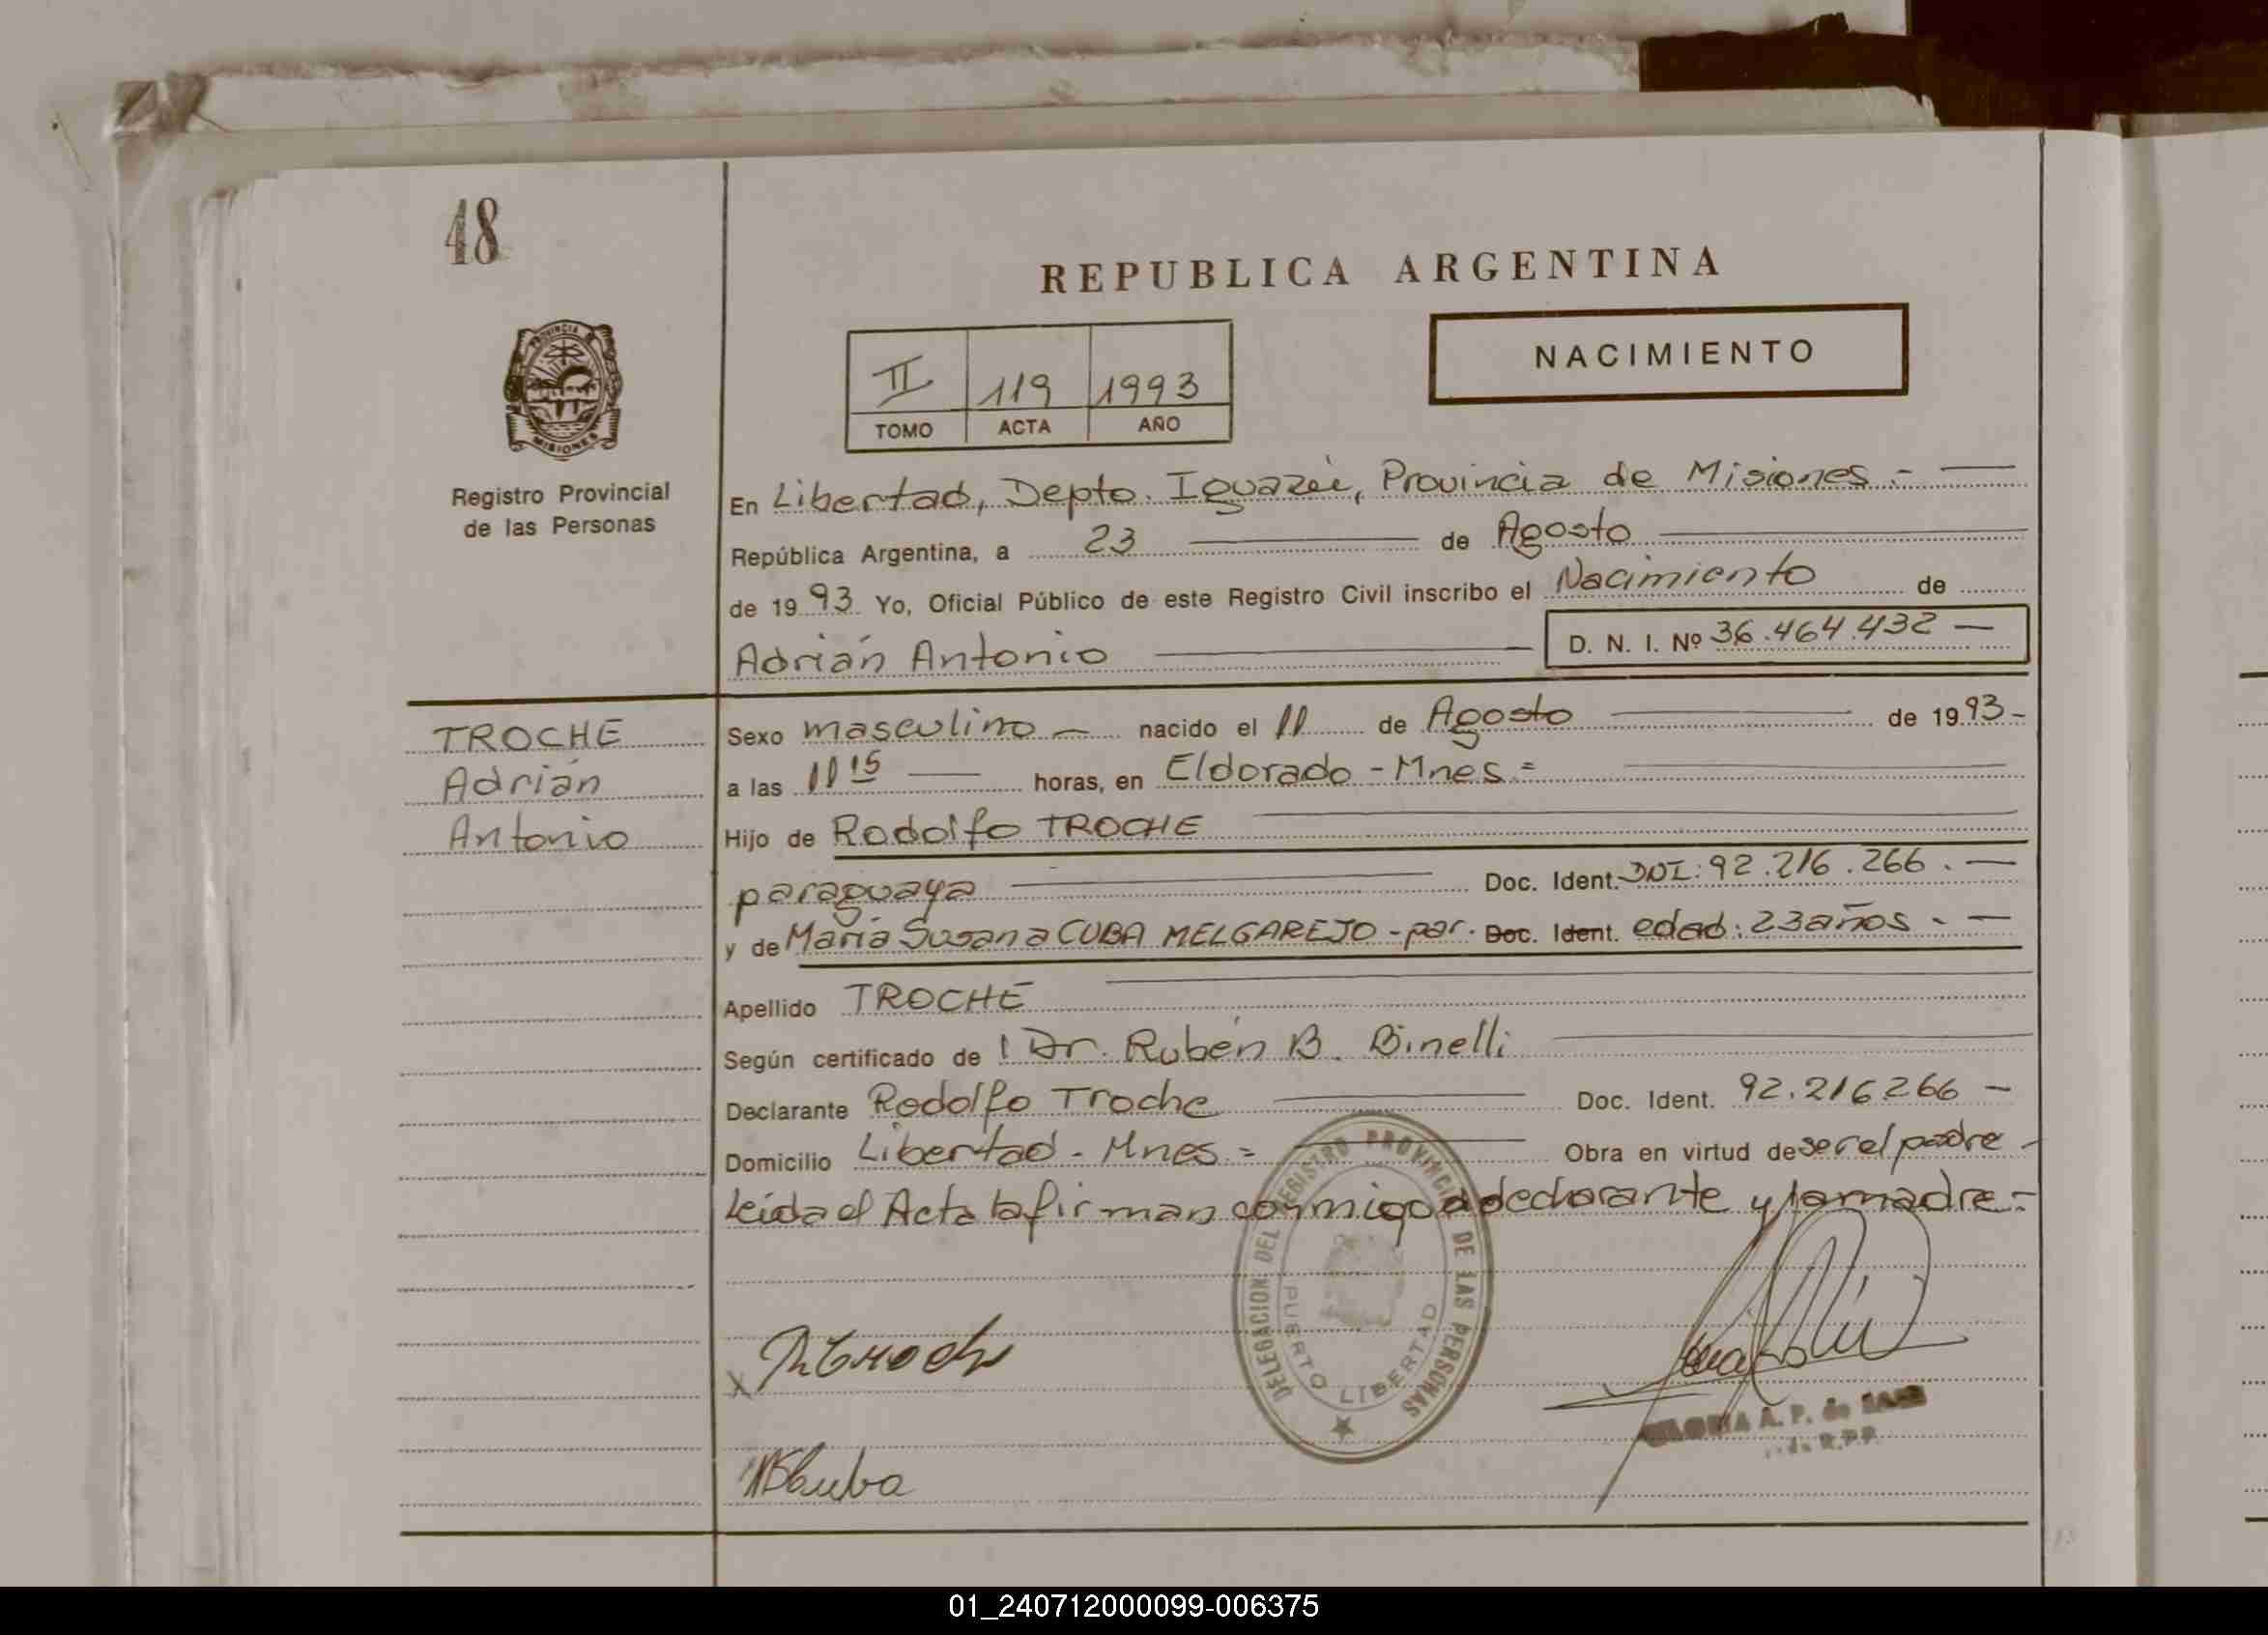 48
REPUBLICA ARGENTINA
NACIMIENTO
II 119 1993
TOMO ACTA AÑO
PROVINCIA
MISIONES
Registro Provincial
de las Personas
En Libertad, Depto. Iguazú, Provincia de Misiones.-
República Argentina, a 23 de Agosto
de 1993 Yo, Oficial Público de este Registro Civil inscribo el Nacimiento de
Adrián Antonio D. N. I. Nº 36.464.432 —
TROCHE
Adrián
Antonio
Sexo masculino — nacido el 11 de Agosto de 1993-
a las 11 15 horas, en Eldorado - Mnes =
Hijo de Rodolfo TROCHE
paraguaya Doc. Ident. DNI: 92.216.266. —
y de María Susana CUBA MELGAREJO - par. Doc. Ident. edad: 23 años - —
Apellido TROCHE
Según certificado de l Dr. Rubén B. Binelli
Declarante Rodolfo Troche Doc. Ident. 92.216266 —
Domicilio Libertad - Mnes = Obra en virtud de ser el padre -
Leida el Acta la firman conmigo el declarante y la madre.-
DELEGACION DEL REGISTRO PROVINCIAL DE LAS PERSONAS
PUERTO LIBERTAD
x R Troche
MSCuba
A. P. de
R.P.P.
01_240712000099-006375